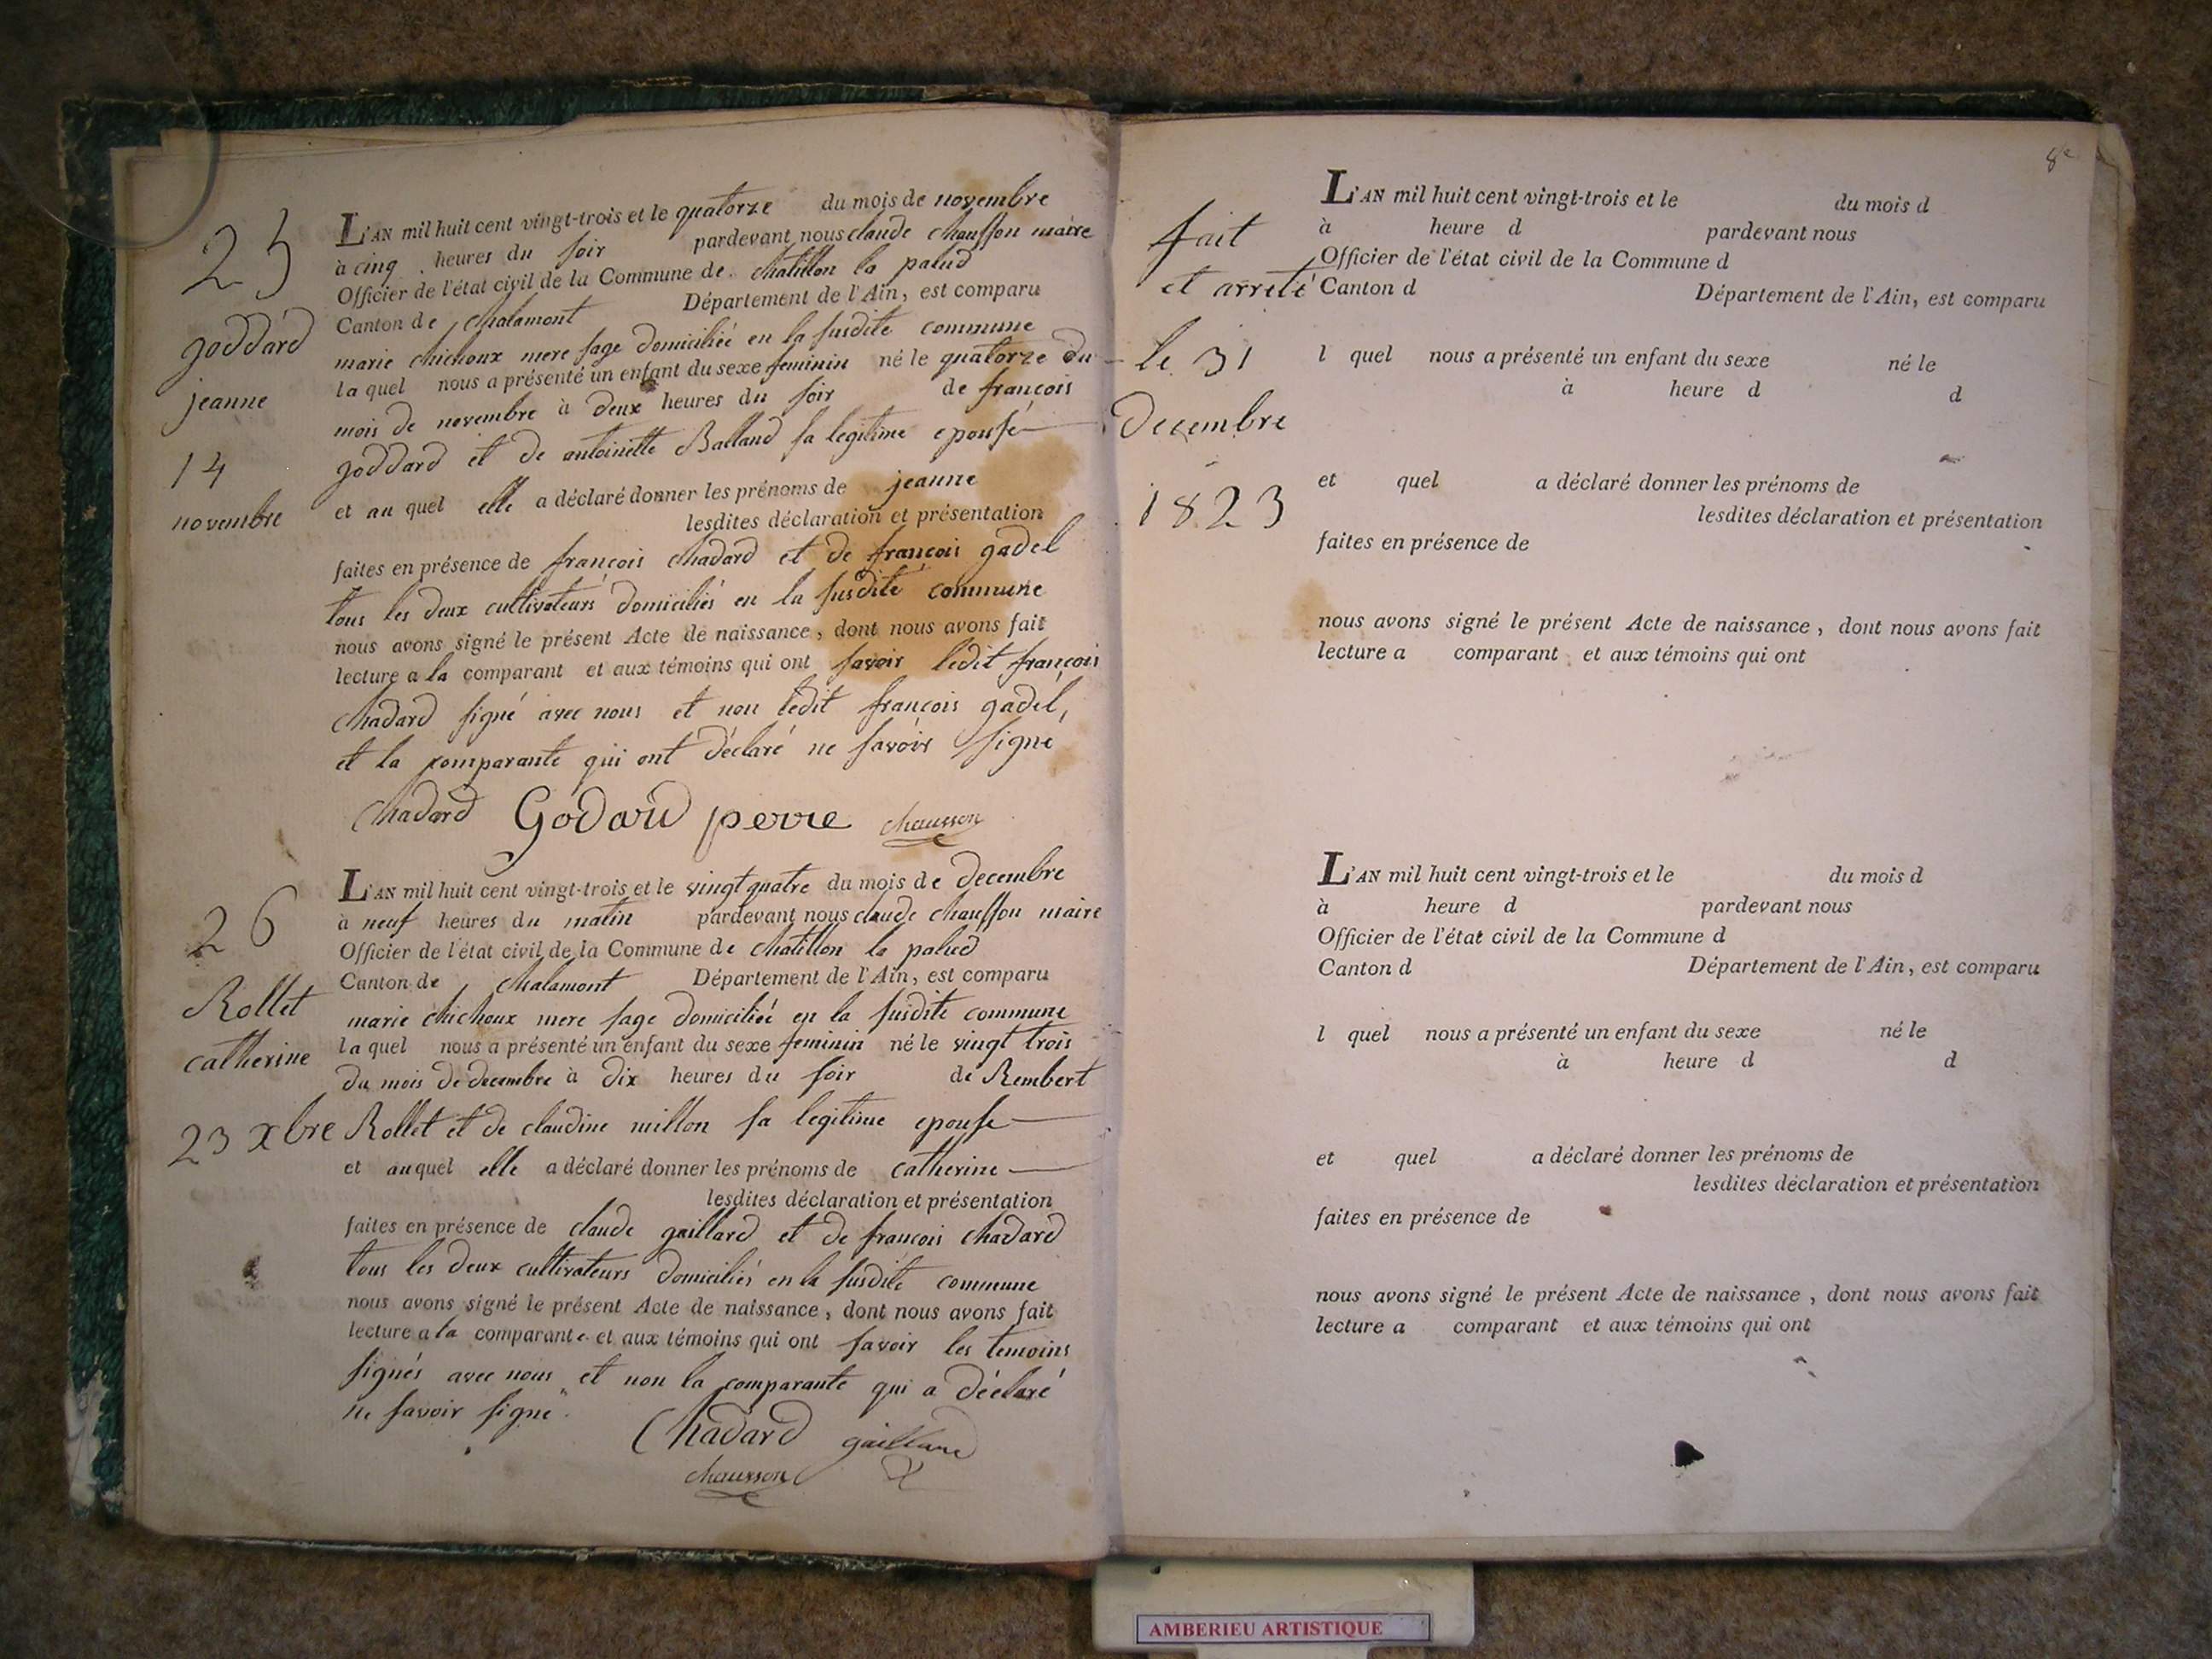 25
goddard
jeanne
14
novembre
L'AN mil huit cent vingt-trois et le quatorze du mois de novembre
à cinq heures du soir pardevant nous claude chausson maire
Officier de l'état civil de la Commune de chatillon la palud
Canton de chalamont Département de l'Ain, est comparu
marie chichoux mere sage domiciliée en la susdite commune
la quel nous a présenté un enfant du sexe feminin né le quatorze du
mois de novembre à deux heures du soir de françois
goddard et de antoinette Balland sa legitime epouse
et au quel elle a déclaré donner les prénoms de jeanne
lesdites déclaration et présentation
faites en présence de françois chadard et de françois gadel
tous les deux cultivateurs domiciliés en la susdite commune
nous avons signé le présent Acte de naissance, dont nous avons fait
lecture a la comparant et aux témoins qui ont savoir ledit françois
chadard signé avec nous et non ledit françois gadel,
et la comparante qui ont déclaré ne savoir signé
chadard Godard perre chausson
26
Rollet
catherine
23 xbre
L'AN mil huit cent vingt-trois et le vingt quatre du mois de decembre
à neuf heures du matin pardevant nous claude chausson maire
Officier de l'état civil de la Commune de chatillon la palud
Canton de chalamont Département de l'Ain, est comparu
marie chichoux mere sage domiciliée en la susdite commune
la quel nous a présenté un enfant du sexe feminin né le vingt trois
du mois de decembre à dix heures du soir de Rembert
Rollet et de claudine millon sa legitime epouse
et au quel elle a déclaré donner les prénoms de catherine
lesdites déclaration et présentation
faites en présence de claude gaillard et de françois chadard
tous les deux cultivateurs domiciliés en la susdite commune
nous avons signé le présent Acte de naissance, dont nous avons fait
lecture a la comparante et aux témoins qui ont savoir les temoins
signés avec nous et non la comparante qui a déclaré
ne savoir signé
Chadard gaillard
chausson
8e
fait
et arreté
le 31
decembre
1823
L'AN mil huit cent vingt-trois et le du mois d
à heure d pardevant nous
Officier de l'état civil de la Commune d
Canton d Département de l'Ain, est comparu
l quel nous a présenté un enfant du sexe né le
à heure d d
et quel a déclaré donner les prénoms de
lesdites déclaration et présentation
faites en présence de
nous avons signé le présent Acte de naissance, dont nous avons fait
lecture a comparant et aux témoins qui ont
L'AN mil huit cent vingt-trois et le du mois d
à heure d pardevant nous
Officier de l'état civil de la Commune d
Canton d Département de l'Ain, est comparu
l quel nous a présenté un enfant du sexe né le
à heure d d
et quel a déclaré donner les prénoms de
lesdites déclaration et présentation
faites en présence de
nous avons signé le présent Acte de naissance, dont nous avons fait
lecture a comparant et aux témoins qui ont
AMBERIEU ARTISTIQUE